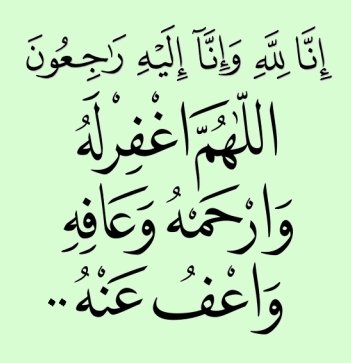 إِنَّا لِلَّهِ وَإِنَّآ إِلَيْهِ رَٰجِعُونَ
اللَّهُمَّ اغْفِرْ لَهُ
وَارْحَمْهُ وَعَافِهِ
وَاعْفُ عَنْهُ ..